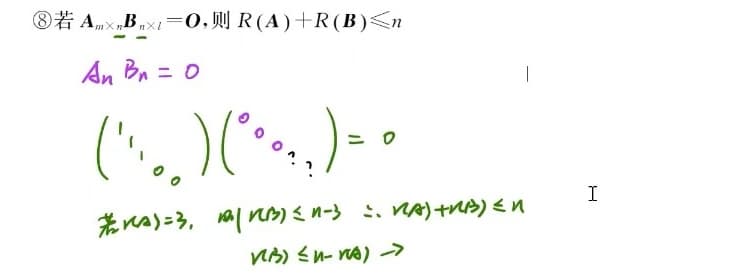 ⑧若 AₘₓₙBₙₓₗ=O,则 R(A)+R(B)≤n
Aₙ Bₙ = 0
(1 1 1 0 0)(0 0 0 ? ?) = 0
若r(A)=3, 则r(B)≤n-3 ∴ r(A)+r(B)≤n
r(B)≤n-r(A) →